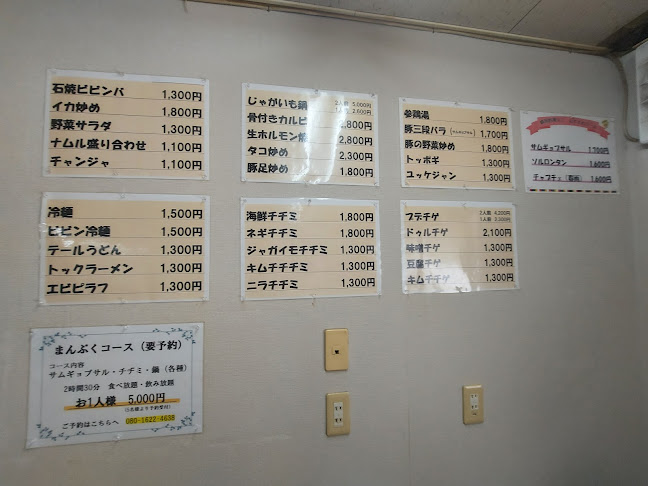 石焼ビビンバ 1,300円
イカ炒め 1,800円
野菜サラダ 1,300円
ナムル盛り合わせ 1,100円
チャンジャ 1,100円
じゃがいも鍋 2人前 5,000円
1人前 2,600円
骨付きカルビ 2,800円
生ホルモン焼 2,800円
タコ炒め 2,300円
豚足炒め 1,800円
参鶏湯 1,800円
豚三段バラ (サムギョプサル) 1,700円
豚の野菜炒め 1,800円
トッポギ 1,300円
ユッケジャン 1,300円
サムギョプサル 1700円
ソルロンタン 1600円
チャプチェ 1600円
冷麺 1,500円
ビビン冷麺 1,500円
テールうどん 1,300円
トックラーメン 1,300円
エビピラフ 1,300円
海鮮チヂミ 1,800円
ネギチヂミ 1,800円
ジャガイモチヂミ 1,300円
キムチチヂミ 1,300円
ニラチヂミ 1,300円
プデチゲ 2人前 4,200円
1人前 2,200円
ドゥルチゲ 2,100円
味噌チゲ 1,300円
豆腐チゲ 1,300円
キムチチゲ 1,300円
まんぷくコース（要予約）
コース内容
サムギョプサル・チヂミ・鍋（各種）
2時間30分 食べ放題・飲み放題
お1人様 5,000円
ご予約はこちらへ 080-1622-4638